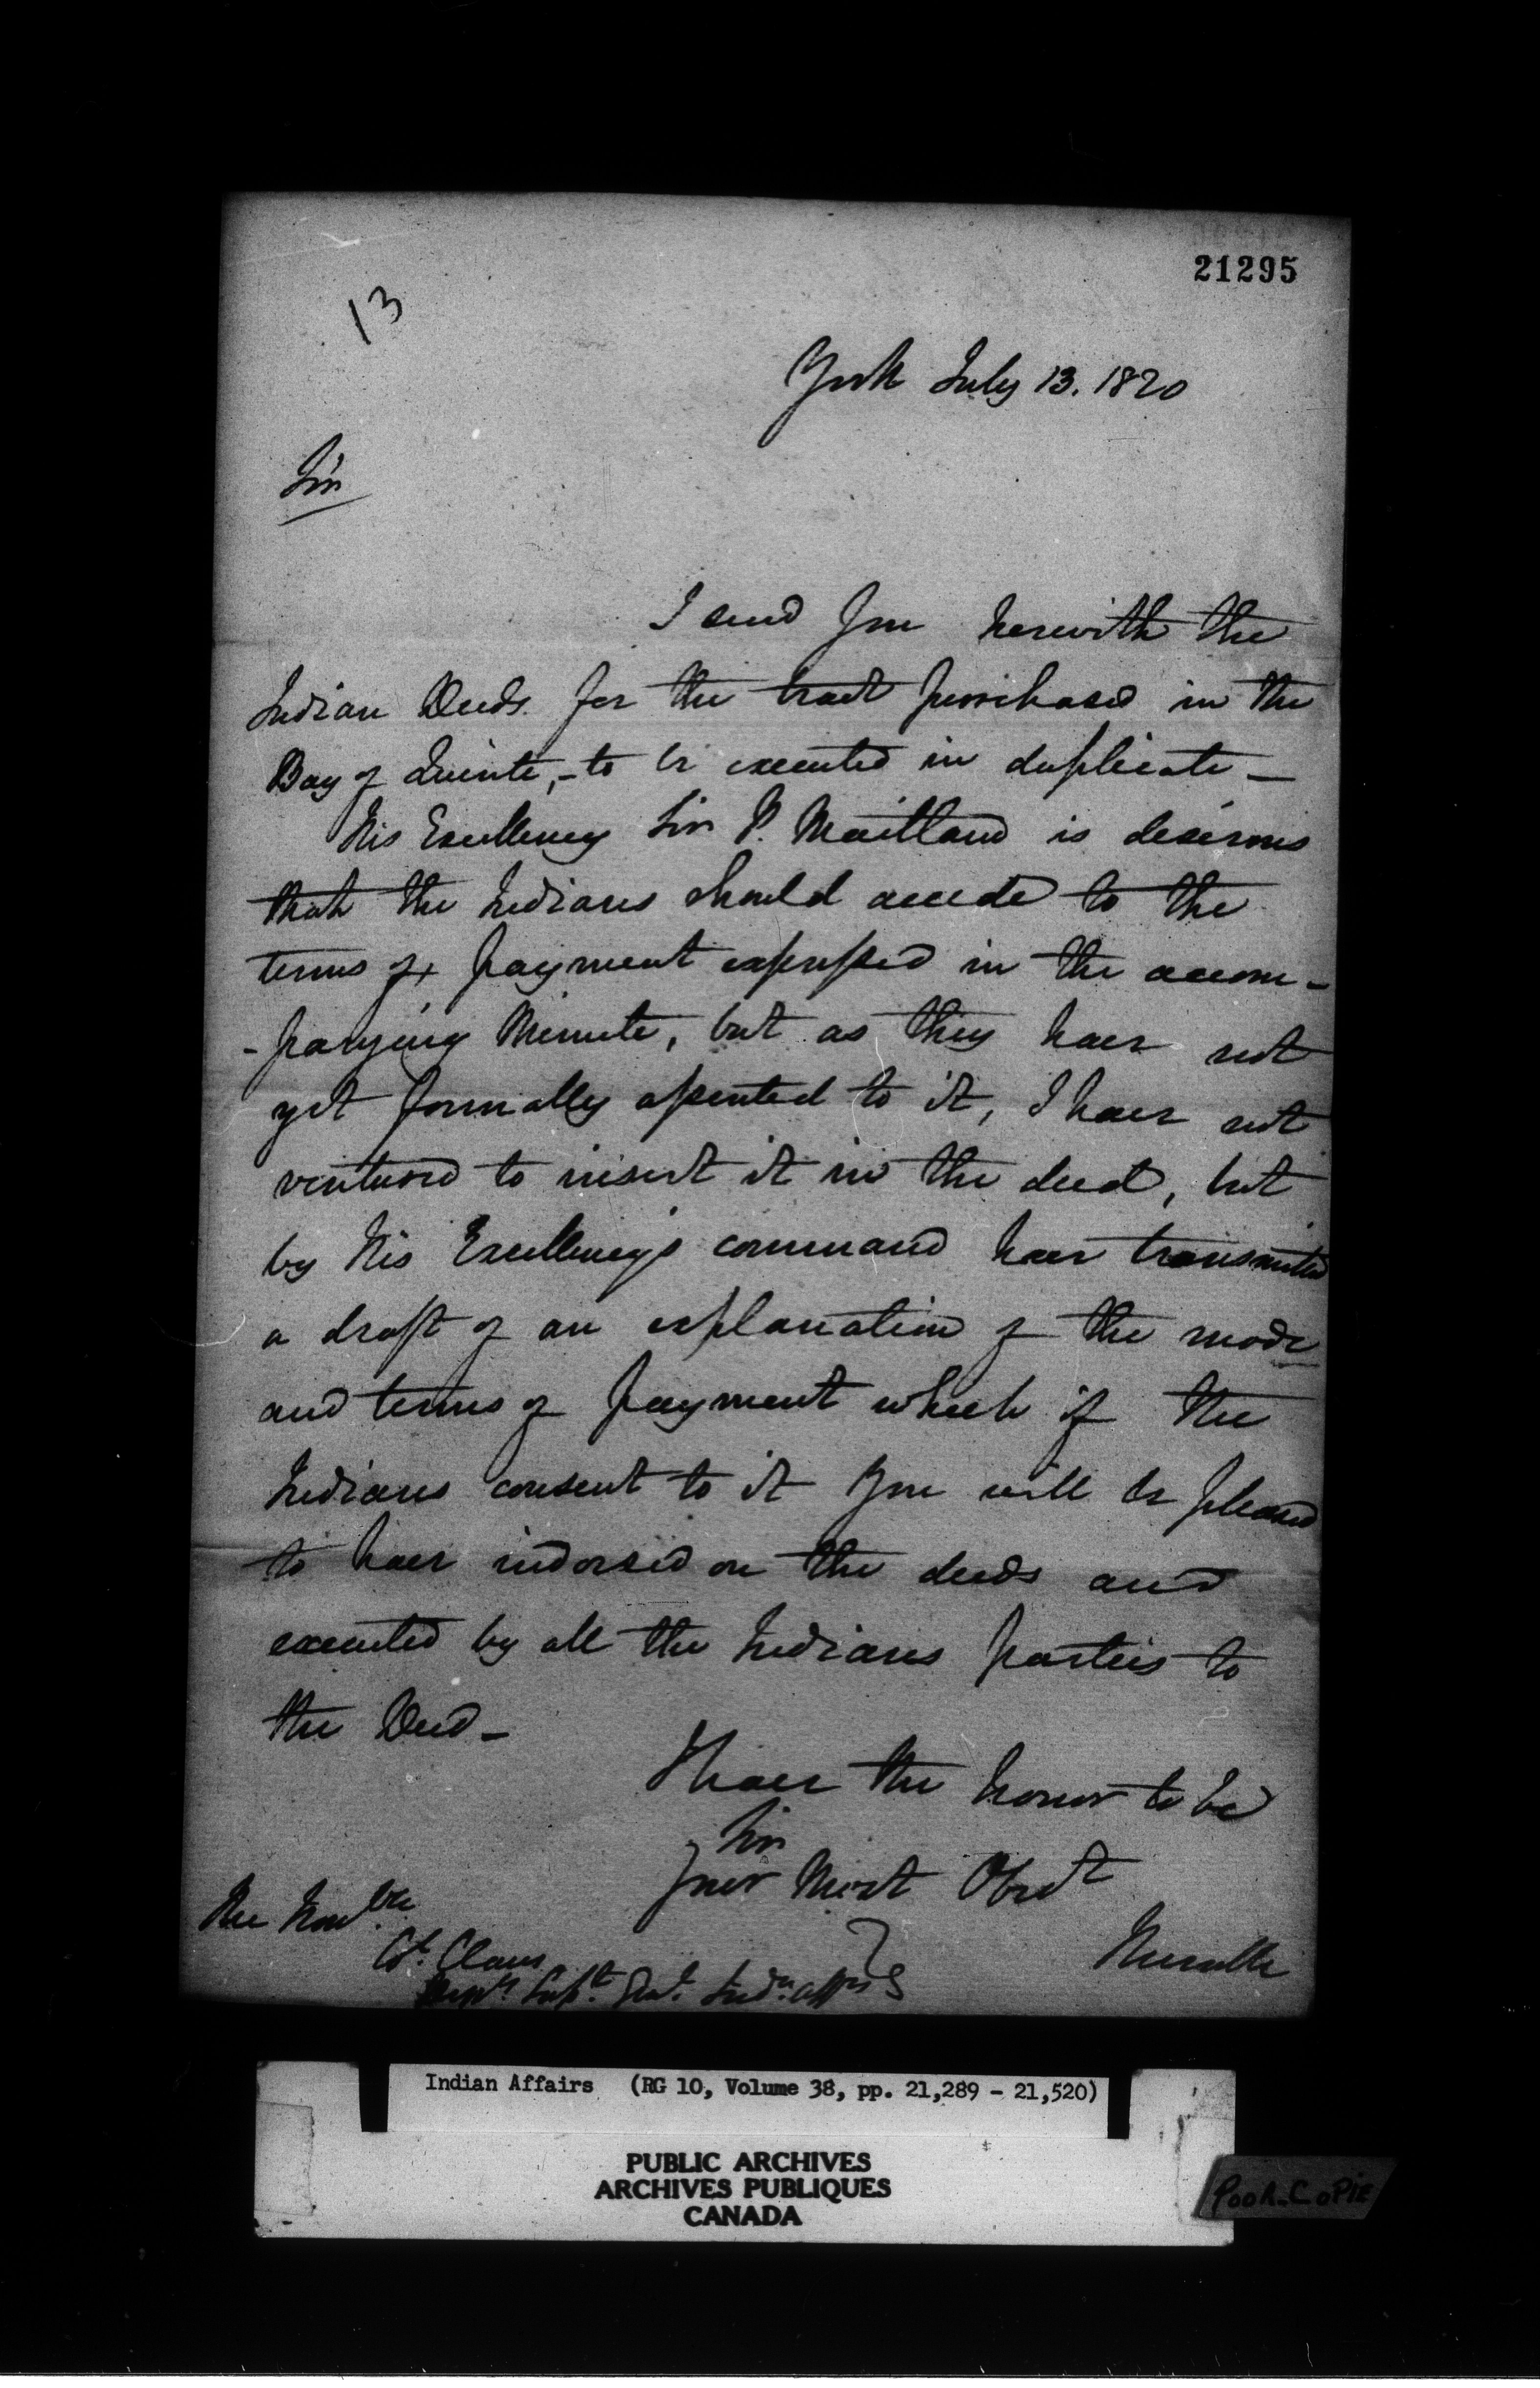 21295
13
York July 13. 1820
Sir
I send you herewith the
Indian Deeds for the tract purchased in the
Bay of Quinte, - to be executed in duplicate -
His Excellency Sir P. Maitland is desirous
that the Indians should accede to the
terms of payment expressed in the accom-
-panying Minute, but as they have not
yet formally assented to it, I have not
ventured to insert it in the deed, but
by His Excellency's command have transmitted
a draft of an explanation of the mode
and terms of payment which if the
Indians consent to it you will be pleased
to have indorsed on the deeds and
executed by all the Indians parties to
the Deed -
I have the honor to be
Sir
Your Most Obedt
The Honble
Col. Claus
Depy. Supt. Genl. Indn. Affrs
Indian Affairs (RG 10, Volume 38, pp. 21,289 - 21,520)
PUBLIC ARCHIVES
ARCHIVES PUBLIQUES
CANADA
POOR-COPIE